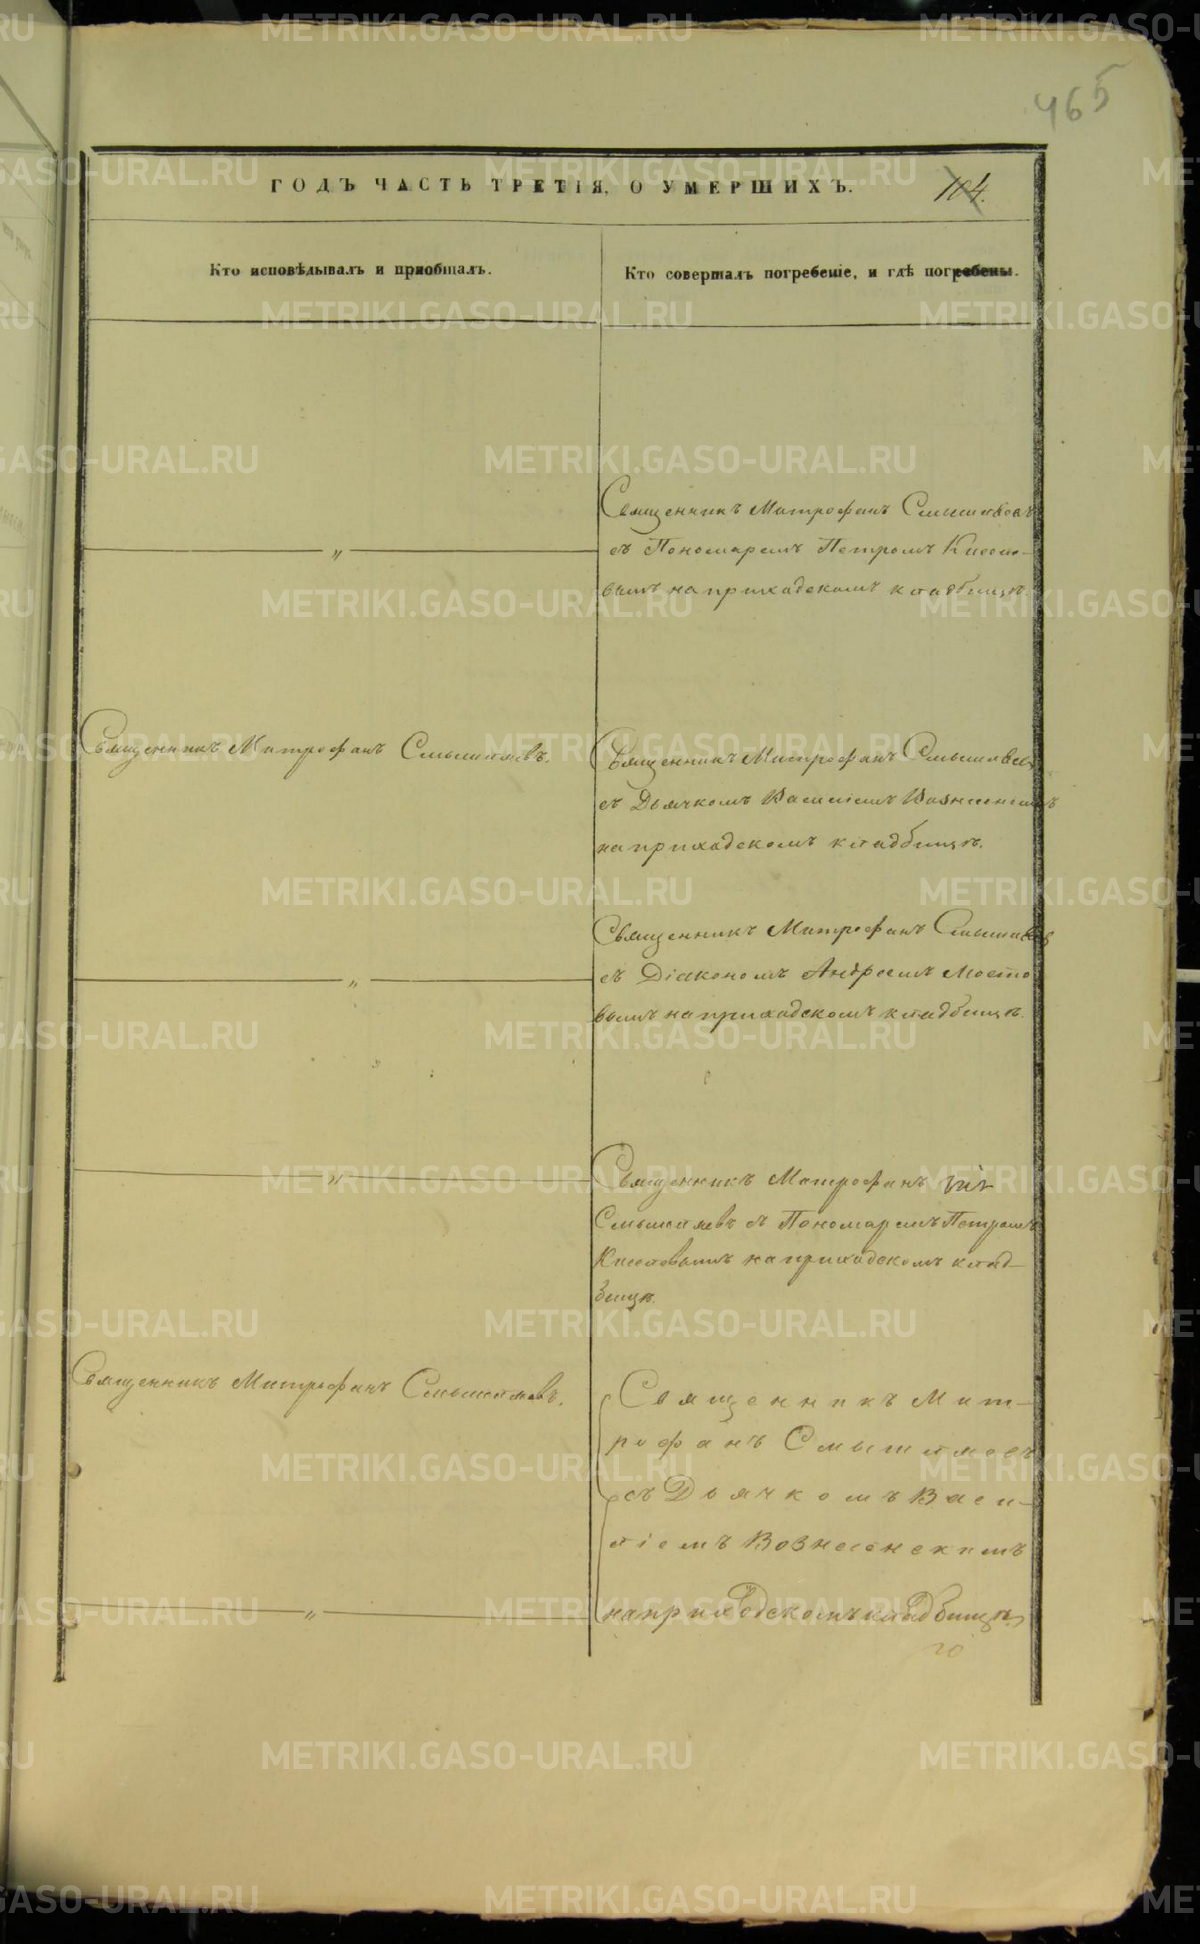 465
ГОДЪ ЧАСТЬ ТРЕТІЯ, О УМЕРШИХЪ.
104.
Кто исповѣдывалъ и пріобщалъ.
Кто совершалъ погребеніе, и гдѣ погребены.
Священникъ Митрофанъ Смышляевъ
съ Пономаремъ Петромъ Киселе-
вымъ на приходскомъ кладбищѣ.
"
Священникъ Митрофанъ Смышляевъ.
Священникъ Митрофанъ Смышляевъ
съ Дьячкомъ Василіемъ Вознесенскимъ
на приходскомъ кладбищѣ.
Священникъ Митрофанъ Смышляевъ
"
съ Діакономъ Андреемъ Мосто
вымъ на приходскомъ кладбищѣ.
"
Священникъ Митрофанъ
Смышляевъ съ Пономаремъ Петромъ
Киселевымъ на приходскомъ клад-
бищѣ.
Священникъ Митрофанъ Смышляевъ.
Священникъ Мит-
рофанъ Смышляевъ
съ Дьячкомъ Васи-
ліемъ Вознесенскимъ
"
на приходскомъ кладбищѣ.
METRIKI.GASO-URAL.RU